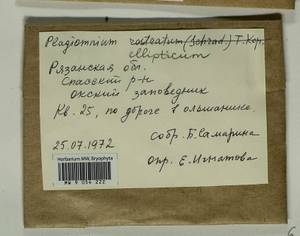 Plagiomnium rostratum (Schrad.) T. Kop.
ellipticum
Рязанская обл.
Спасский р-н
Окский заповедник
Кв. 25, по дороге в ольшанике.
25.07.1972
собр. Б. Самарина
опр. Е. Игнатова
Herbarium MW, Bryophyta
MW 9 054 222